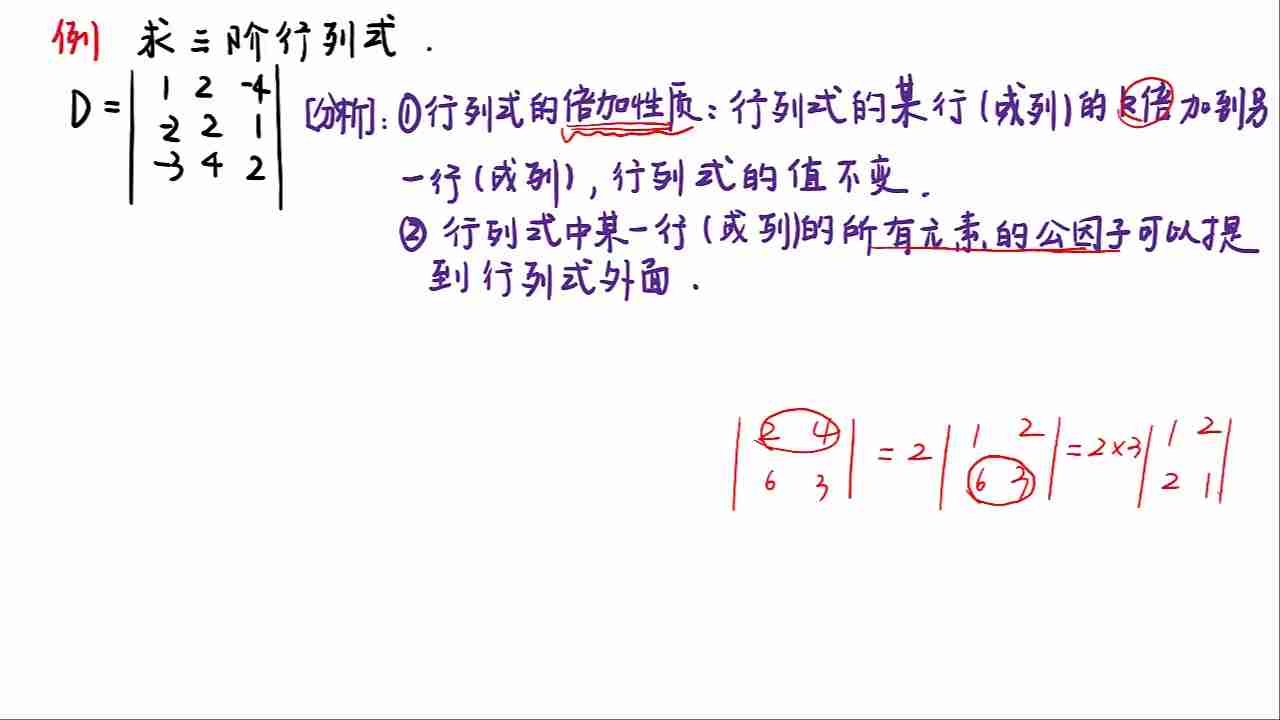 例 求三阶行列式.
D = | 1 2 -4 |
| -2 2 1 |
| -3 4 2 |
[分析]: ①行列式的倍加性质: 行列式的某行(或列)的k倍加到另
一行(或列), 行列式的值不变.
② 行列式中某一行(或列)的所有元素的公因子可以提
到行列式外面.
| 2 4 | = 2 | 1 2 | = 2×3 | 1 2 |
| 6 3 | | 6 3 | | 2 1 |